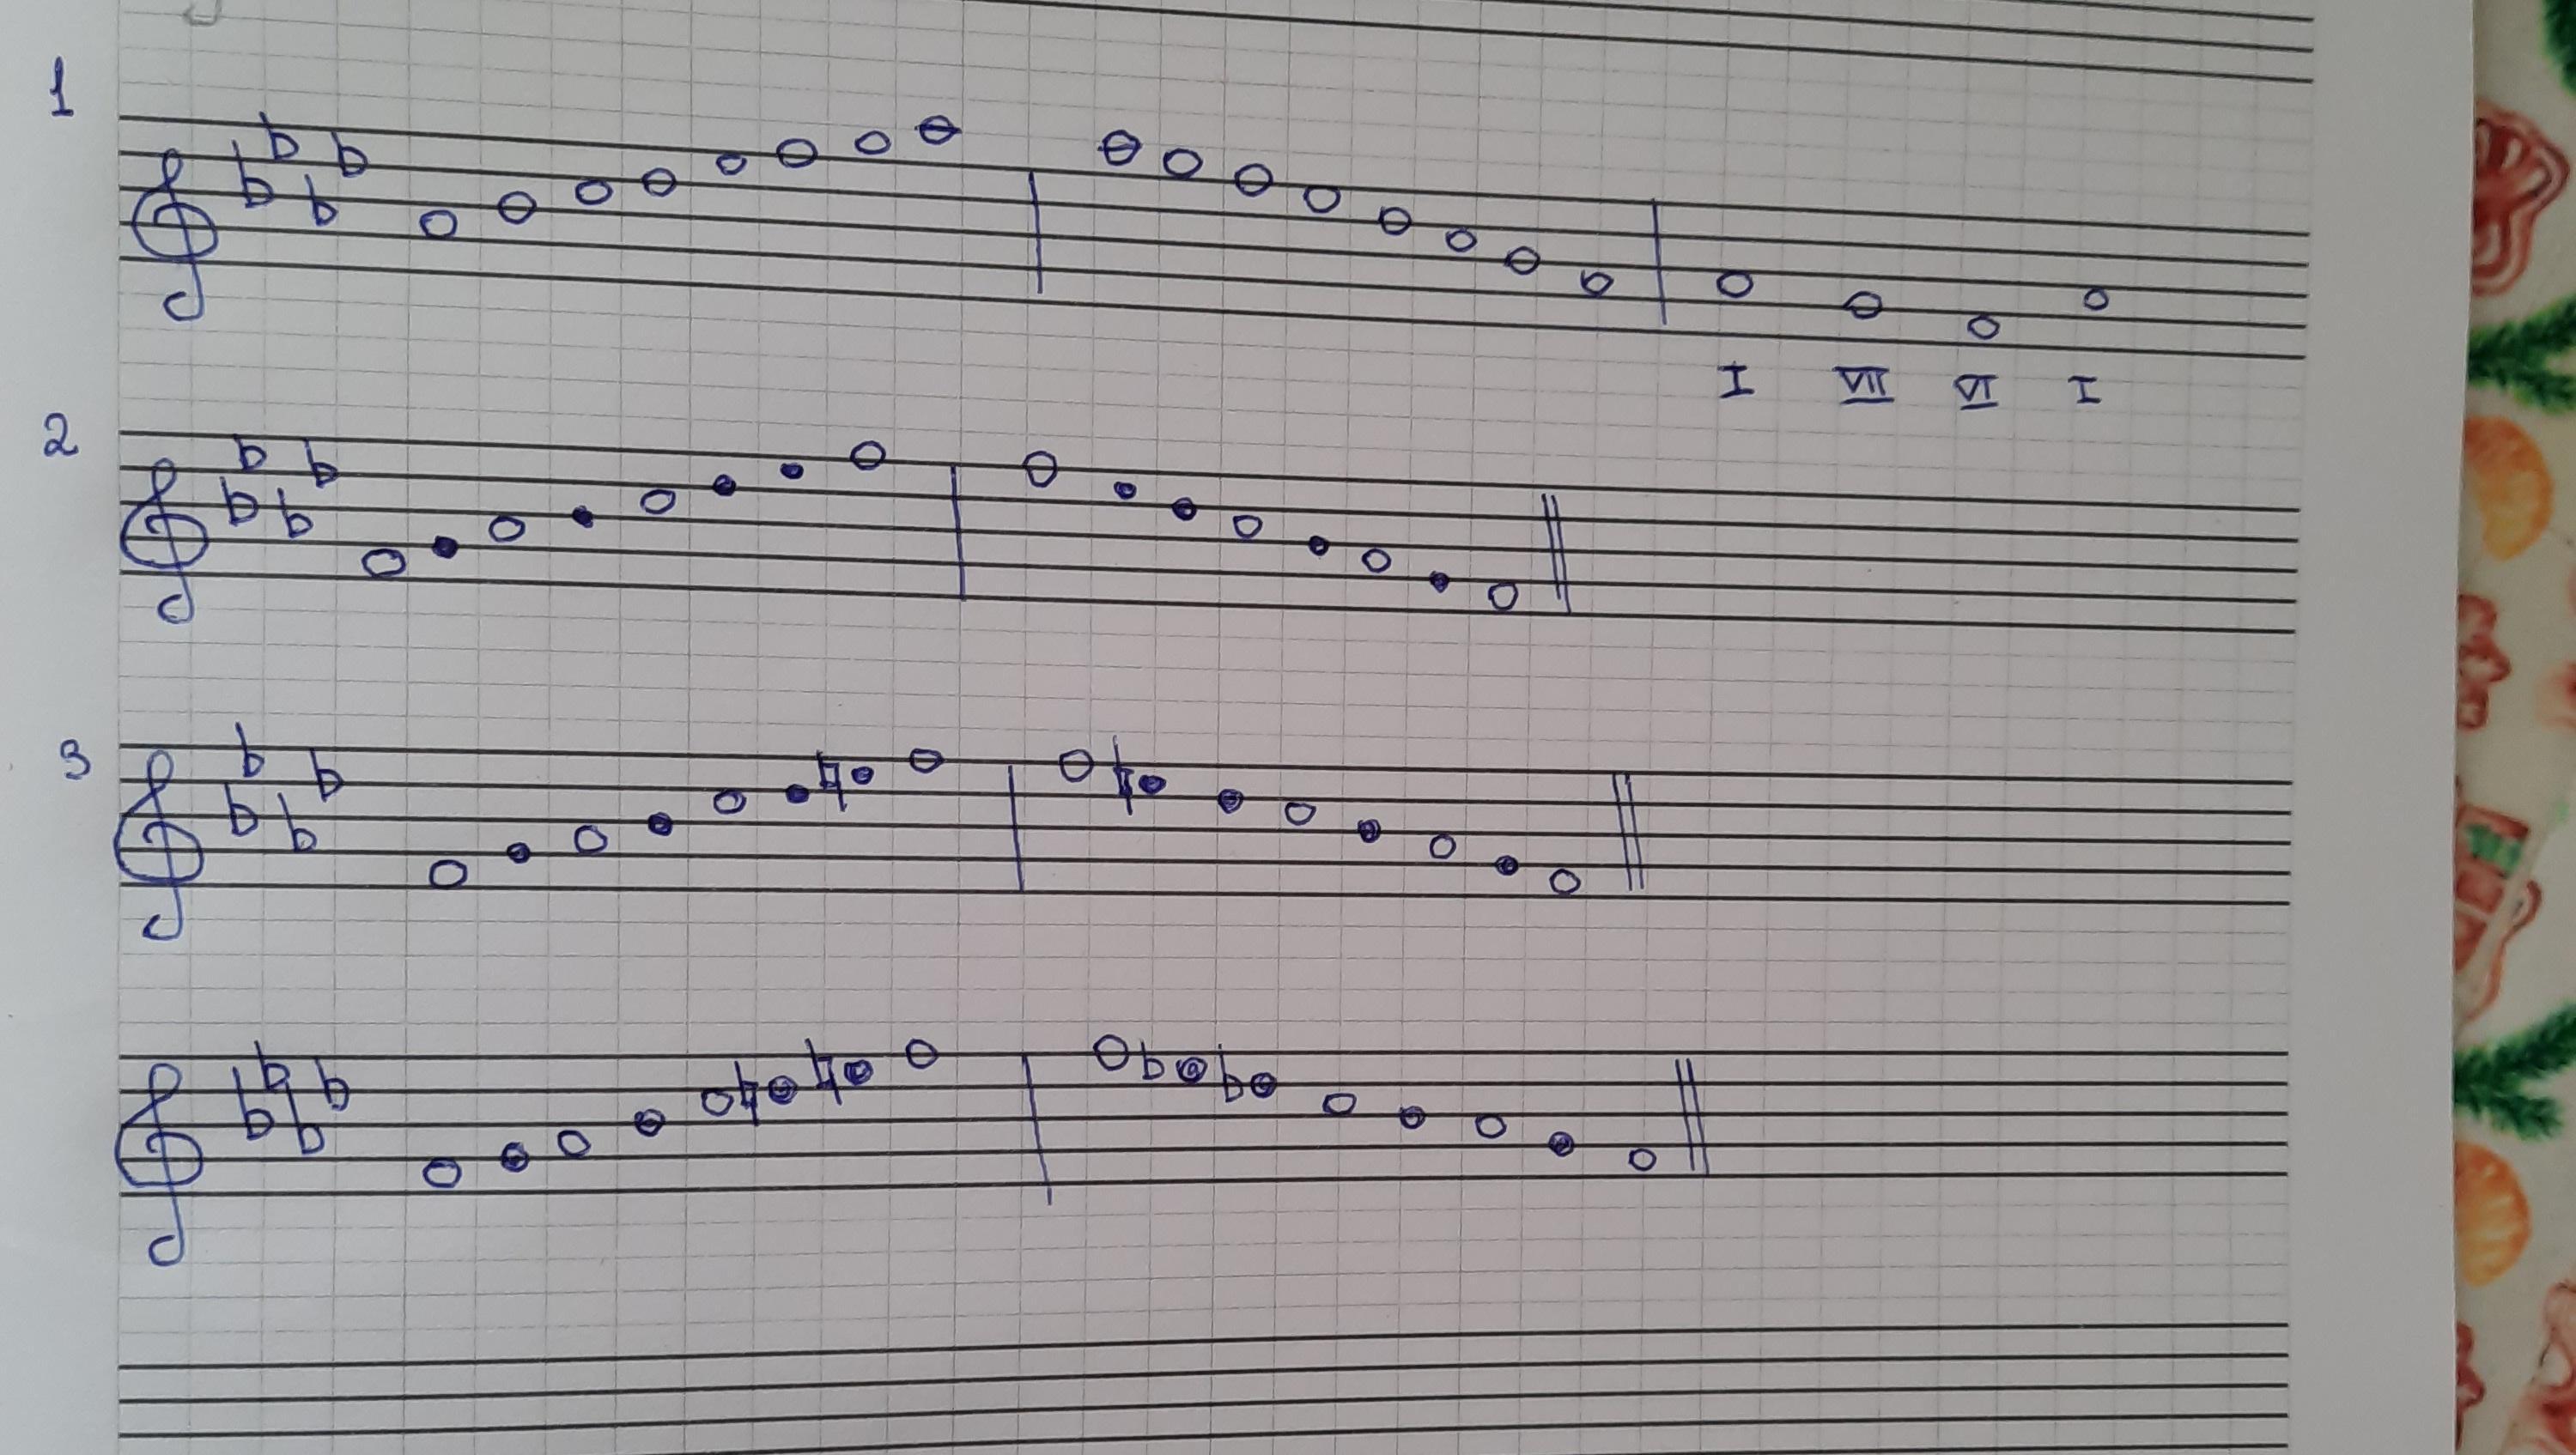 1
I VII VI I
2
3